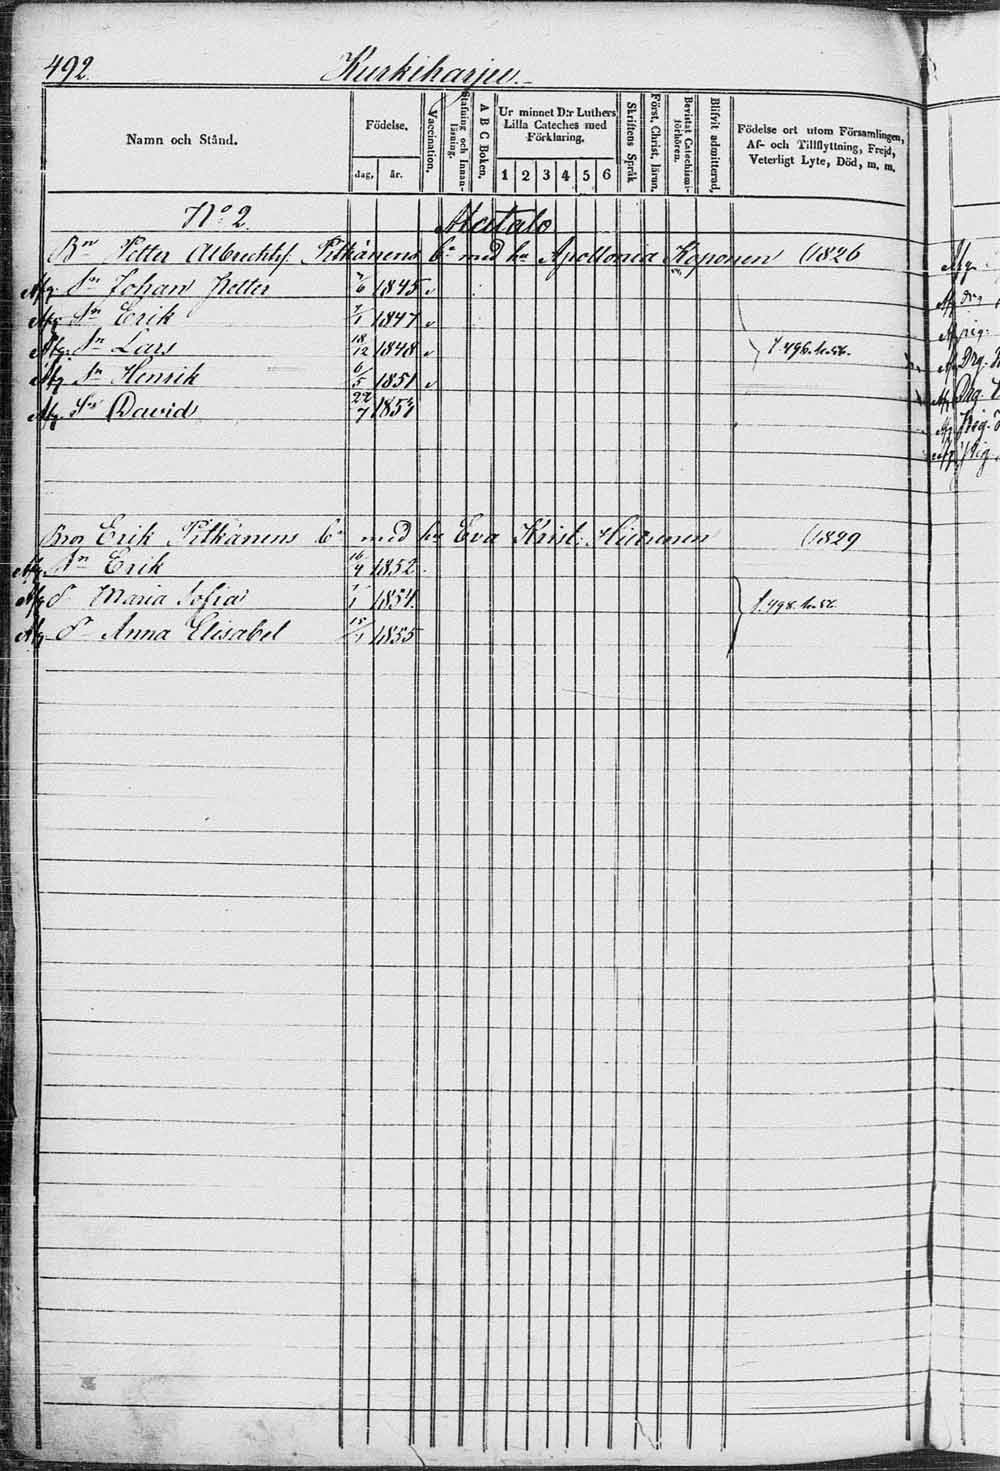 492. Kurkiharju.
Namn och Stånd. Födelse. dag. år. Vaccination. Stafning och Innan-läsning. A B C Boken. Ur minnet D:r Luthers Lilla Cateches med Förklaring. 1 2 3 4 5 6 Skriftens Språk Först. Christ. läran. Bevistat Catechismi-förhören. Blifvit admitterad. Födelse ort utom Församlingen, Af- och Tillflyttning, Frejd, Veterligt Lyte, Död, m. m.
No 2. Autalo
Bn Petter Albrechts: Pitkänens bn med hu Apollonia Koponen (1826
Afg. Sn Johan Petter 1845 v
Afg Sn Erik 7/1 1847 v
Afg. Sn Lars 18/12 1848 v
Afg Sn Henrik 6/5 1851 v
Afg. Sn David 22/7 1853
Bror Erik Pitkänens bn med hu Eva Krist: (1829
Afg Sn Erik 16/4 1852
Afg d Maria Sofia 7/1 1854.
Afg d Anna Elisabet 15/1 1855